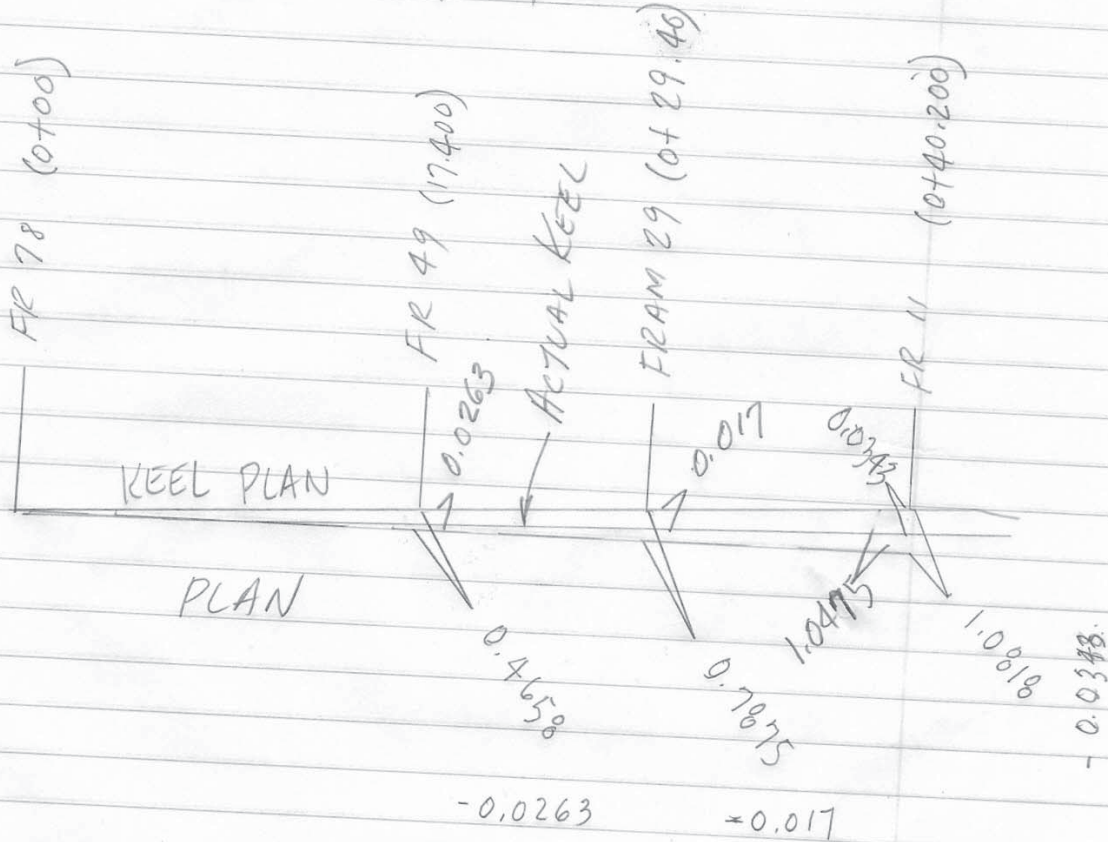 FR 78 (0+00)
FR 49 (17.400)
ACTUAL KEEL
FRAM 29 (0+ 29.40)
FR 11 (0+40.200)
0.0263
0.017
0.0343
KEEL PLAN
PLAN
0.4658
0.7875
1.0475
1.0818
-0.0343
-0.0263
-0.017